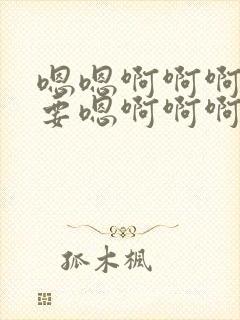 嗯嗯啊啊啊
要嗯啊啊啊
孤木枫